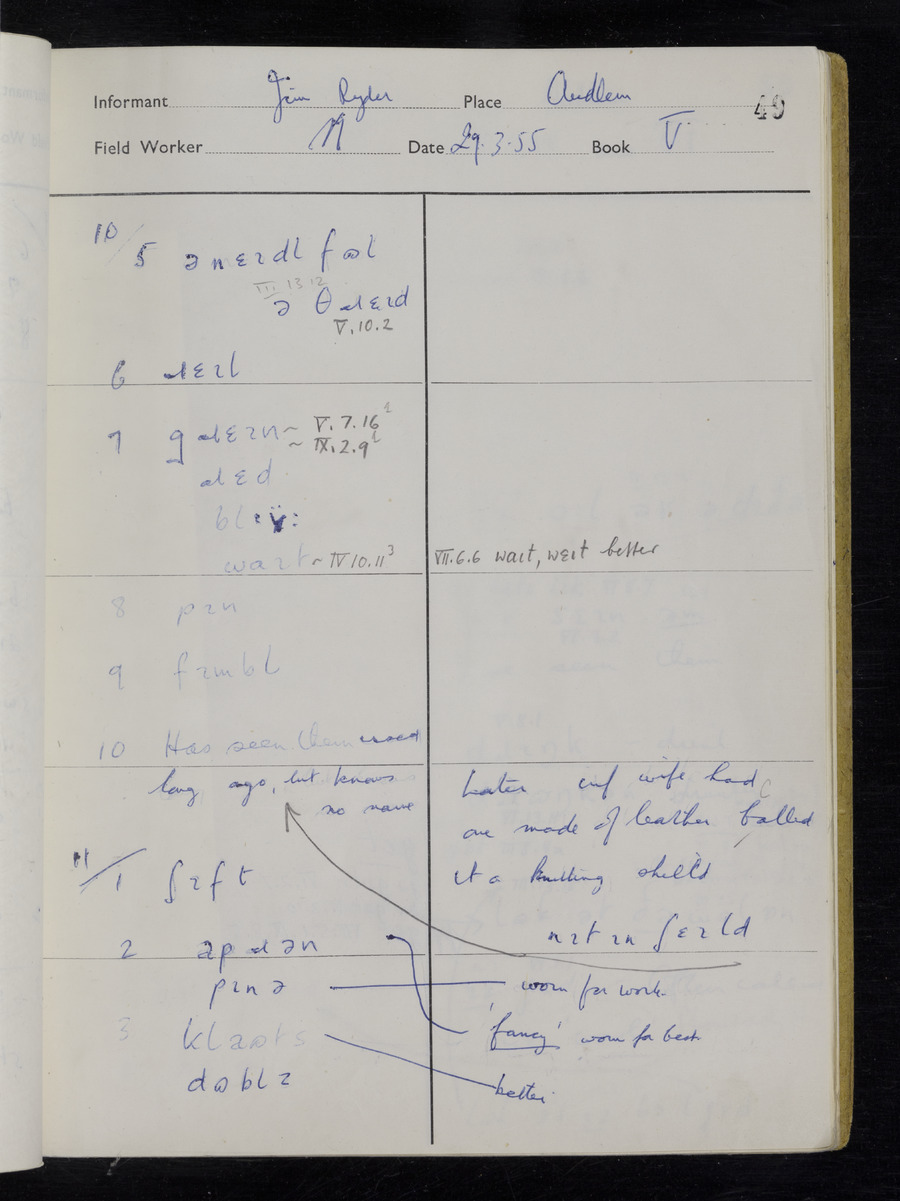 Informant Jim Ryder Place Audlem 49
Field Worker Date 29.3.55 Book V
10/
5 ə nɛɪdl fɷl
III 13 12
ə θɹɛɪd
V.10.2
6 ɹɛɪl
7 gɹɛɪn ~ V.7.16¹
~ IX.2.9¹
ɹɛd
waɪt ~ IV 10.11³ VII.6.6 waɪt, wɛɪt better
8 pɪn
9 fɪmbl
10 Has seen them used
long ago, but knows
no name
Later inf wife had
one made of leather called
it a knitting shield
nɪtɪn ʃɛɪld
11/1 ʃɪft
2 əpɹən
pɪnə worn for work
'fancy' worn for best
3 klaɷts
dɷblɪ better